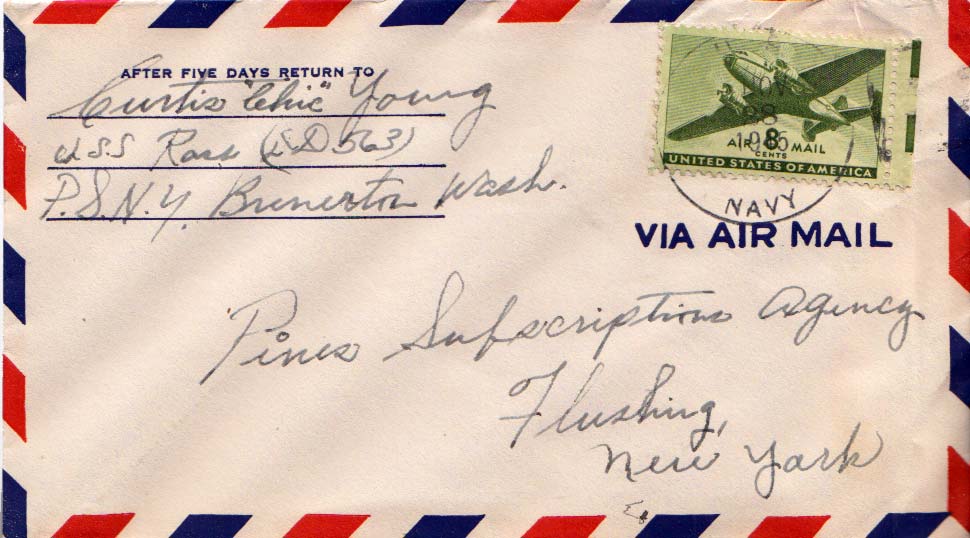 AFTER FIVE DAYS RETURN TO
Curtis "Chic" Young
U.S.S Ross (DD 563)
P.S.N.Y. Bremerton Wash.
NOV
28
AIR 8 MAIL
CENTS
UNITED STATES OF AMERICA
NAVY
VIA AIR MAIL
Pines Subscriptions Agency
Flushing,
New York